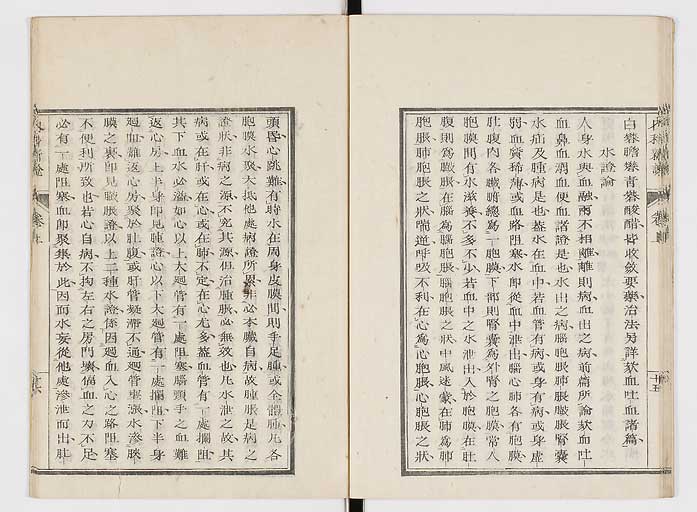 白礬膽礬青礬酸醋皆收斂要藥治法另詳欬血吐血諸篇
水證論
人身水與血融而不相離離則病血出之病前篇所論欬血吐
血鼻血溺血便血諸證是也水出之病腦胞脹肺胞脹臌脹腎囊
水疝及腫病是也蓋水在血中若血管有病或身有病或身虛
弱血質稀薄或血路阻塞水卽從血中泄出腦心肺各有胞膜
肚腹內各臟腑總爲一胞膜下部則腎囊爲外腎之胞膜常人
胞膜間有水滋養不多不少若血中之水泄出入於胞膜在肚
腹則爲臌脹在腦爲腦胞脹腦胞脹之狀中風迷蒙在肺爲肺
胞脹肺胞脹之狀喘逆呼吸不利在心爲心胞脹心胞脹之狀
頭昏心跳難有時水在周身皮膜間則手足腫或全體腫凡各
胞膜水聚大抵他處病證所累非必本臟自病故腫脹是病之
證狀非病之源不究其源但治腫脹必無效也凡水泄之故其
病或在肝或在心或在肺不定在心尤多蓋血管有一處攔阻
其下血水必溢如心以上大迴管有一處阻塞腦頸手之血難
返心房上半身卽見腫證心以下大迴管有一處攔阻下半身
迴血難返心房聚於肚腹或肝管凝滯不通迴管壅漲水滲胨
膜之裏卽見臌脹證以上二種水證係因迴血入心之路阻塞
不便利所致也若心自病不拘左右之房門壞傷血之力不足
必有一處阻塞血卽聚集於此因而水妄從他處滲泄而出肚
卷五
十五